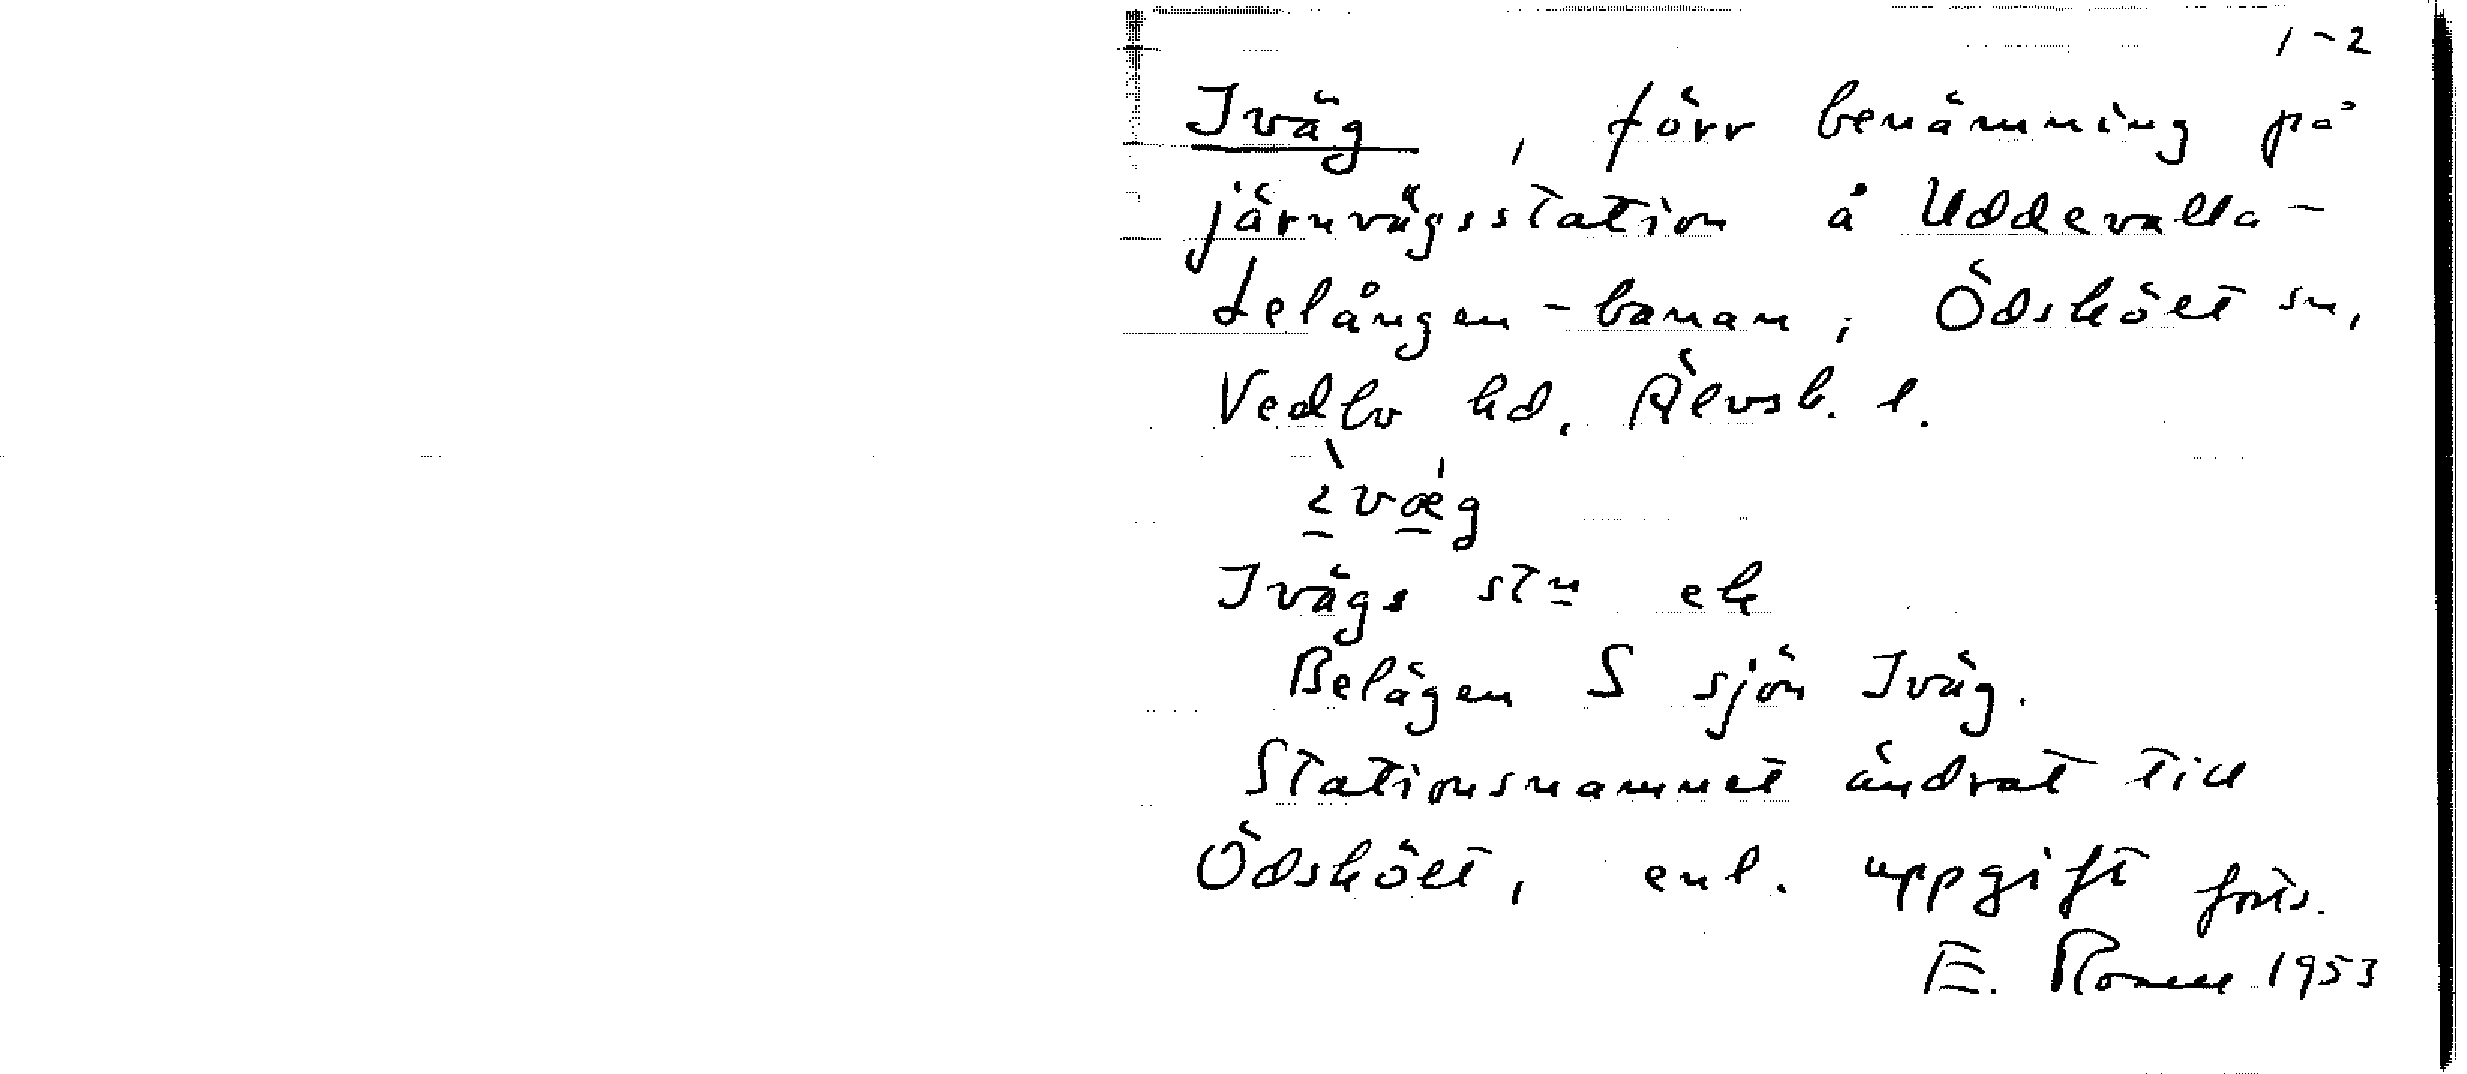 1-2
Iväg, förr benämning på
järnvägsstation å Uddevalla-
Lelången-banan, Ödskölt sn,
Vedbo hd, Älvsb. l.
ìvæ̀g
Ivägs stn ek
Belägen S sjön Iväg.
Stationsnamnet ändrat till
Ödskölt, enl. uppgift forts.
E. 1953